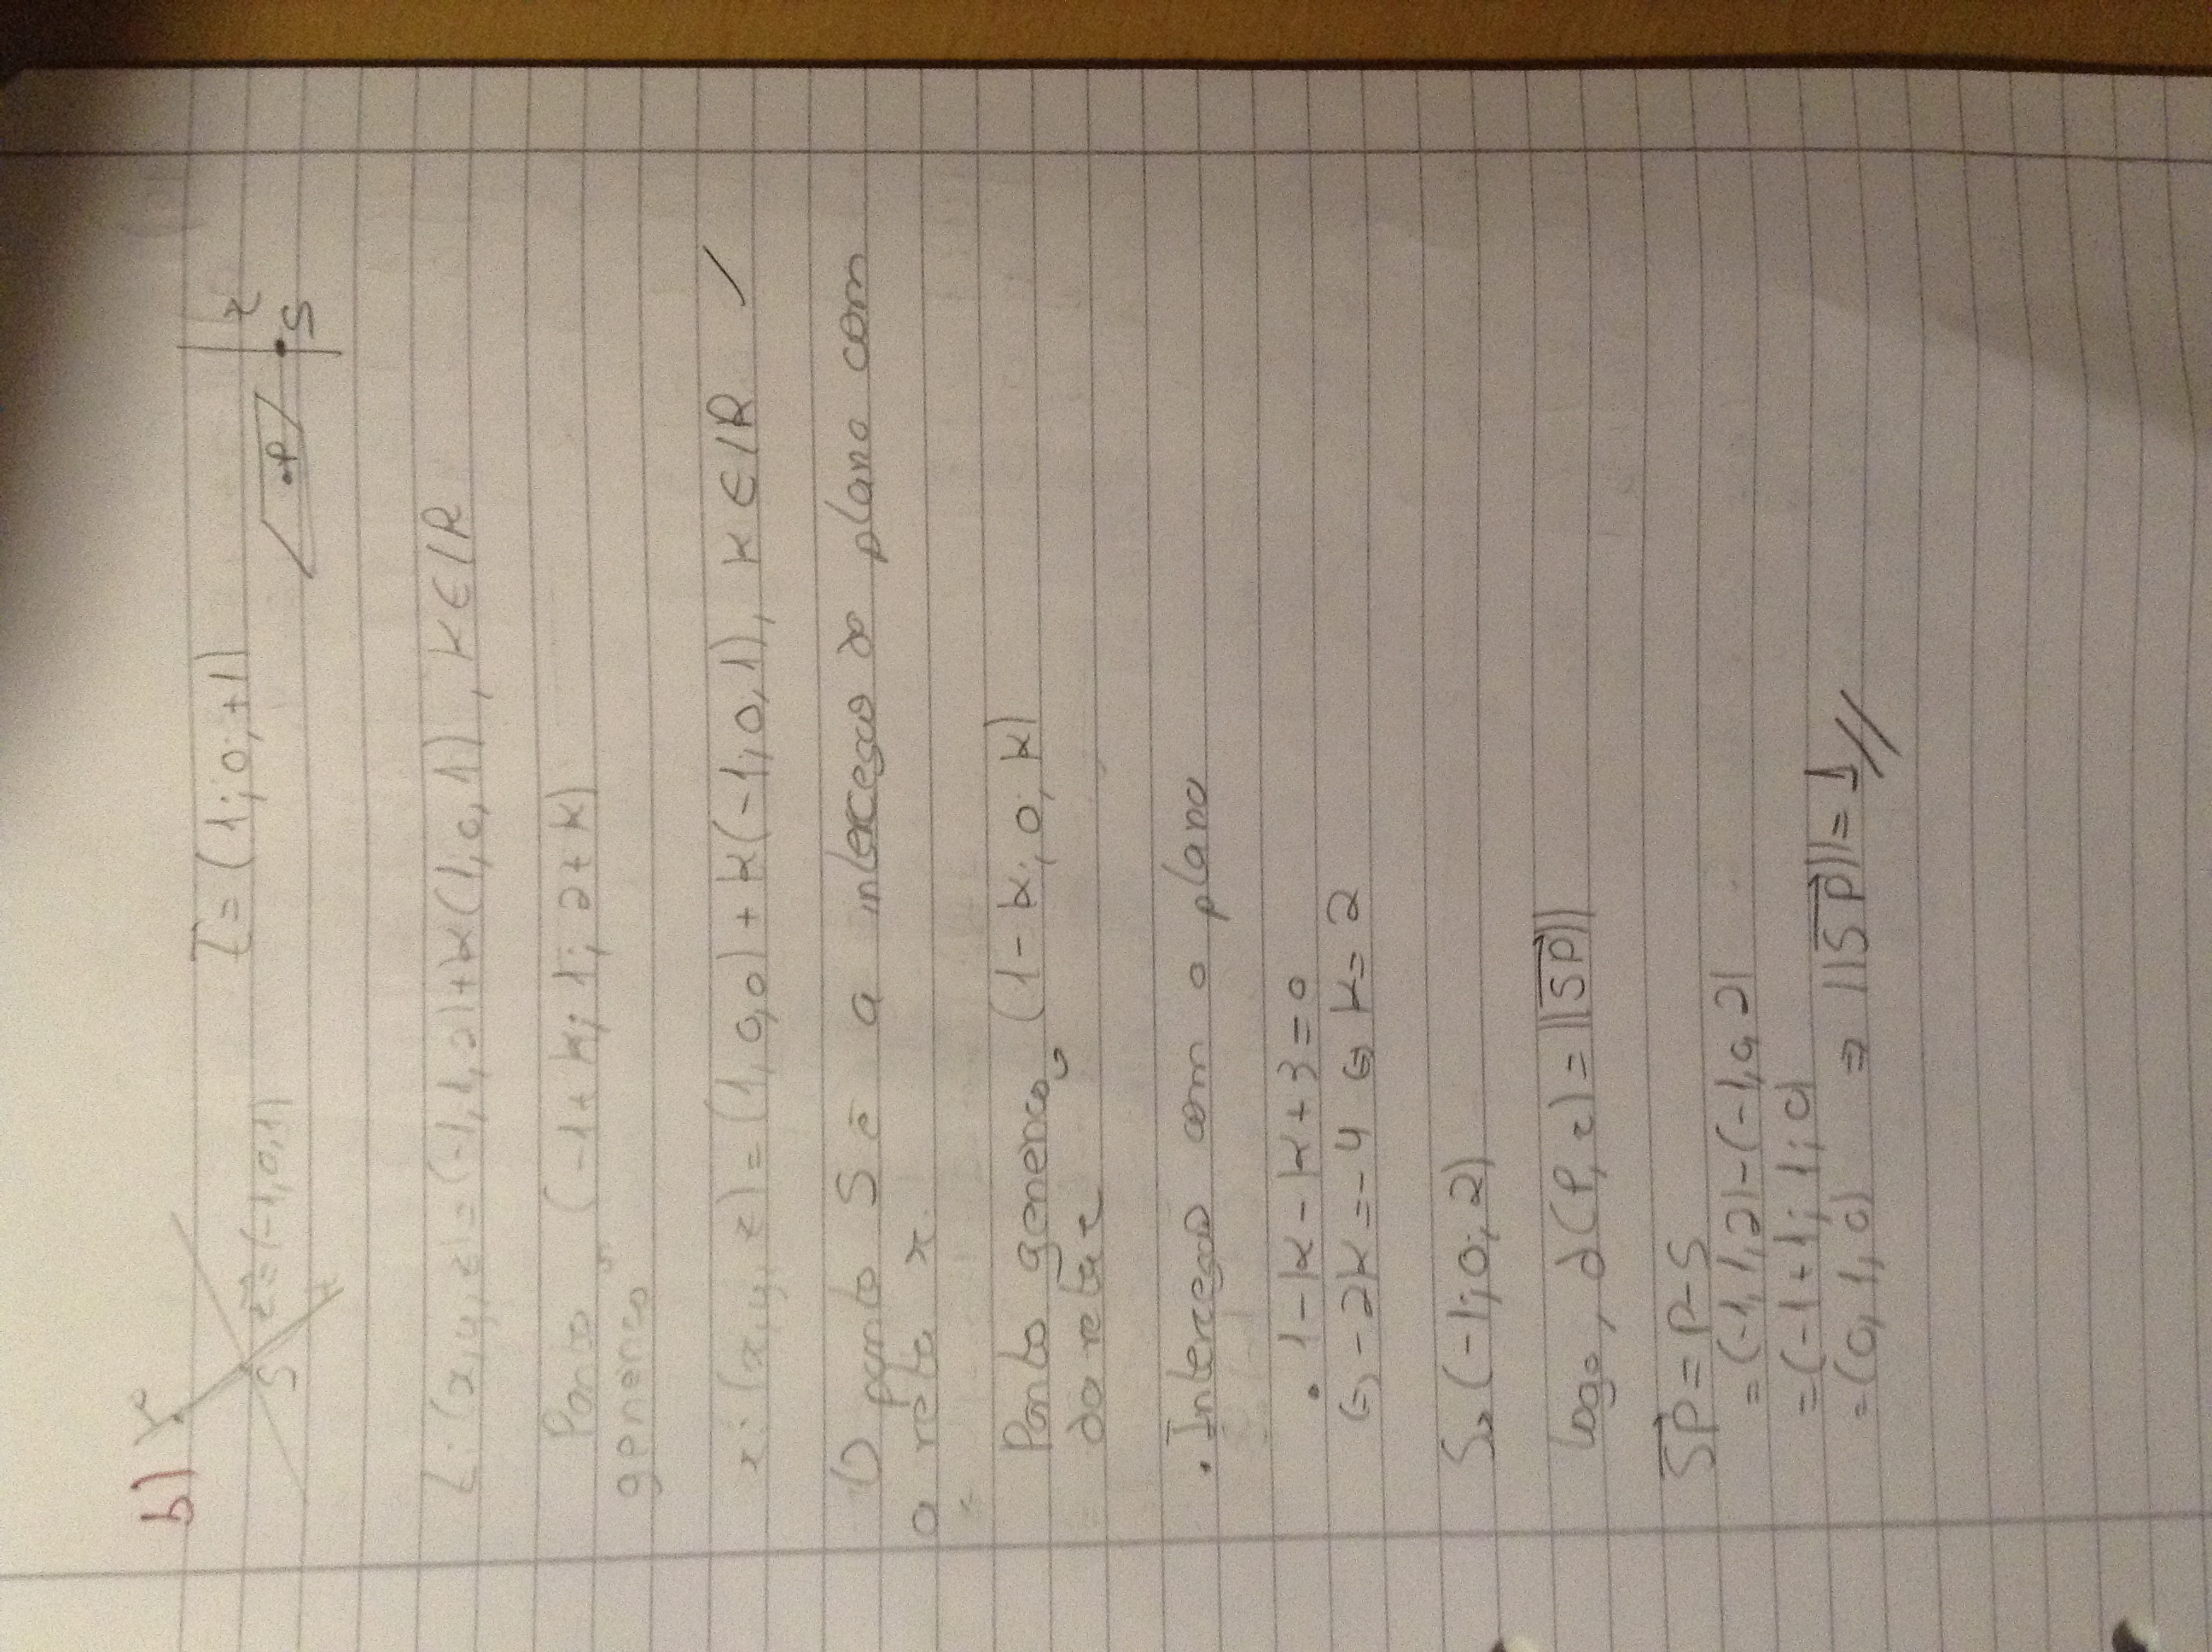 b)
S r⃗=(-1,0,1)
t⃗=(1;0;+1)
r
•P
S
t:(x,y,z)=(-1,1,2)+k(1,0,1), K∈IR
Ponto → (-1+k; 1; 2+k)
genérico
r:(x,y,z)=(1,0,0)+k(-1;0,1), K∈IR
O ponto S é a interceção do plano com
a reta r.
Ponto genérico → (1-k; 0, k)
da reta r
• Interceção com o plano
• 1-k-k+3=0
⇔ -2k=-4 ⇔ k=2
S→(-1;0;2)
Logo, d(P,r)=||SP⃗||
SP⃗=P-S
=(-1,1,2)-(-1,0,2)
=(-1+1; 1; 0)
=(0,1,0) ⇒ ||SP⃗||=1//